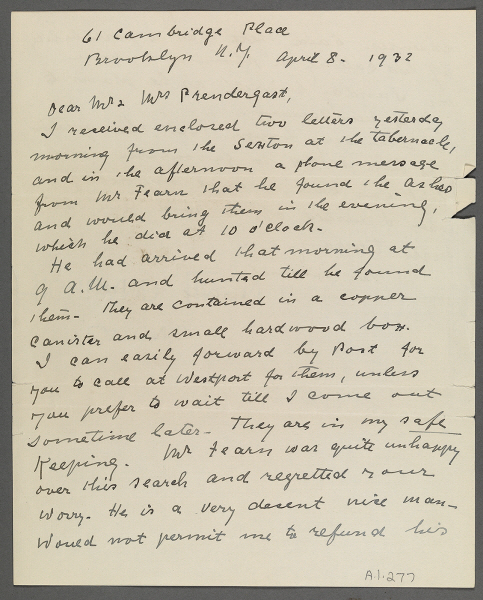 61 Cambridge Place
Brooklyn N.Y. April 8 - 1932
Dear Mr & Mrs Prendergast,
I received enclosed two letters yesterday
morning from the Sexton at the tabernacle,
and in the afternoon a phone message
from Mr. Fearn that he found the ashes
and would bring them in the evening,
which he did at 10 o'clock.
He had arrived that morning at
9 A.M. and hunted till he found
them. They are contained in a copper
canister and small hardwood box.
I can easily forward by Post for
you to call at Westport for them, unless
you prefer to wait till I come out
sometime later. They are in my safe
Keeping. Mr Fearn was quite unhappy
over this search and regretted your
worry. He is a very decent nice man -
Would not permit me to refund his
A.1.277